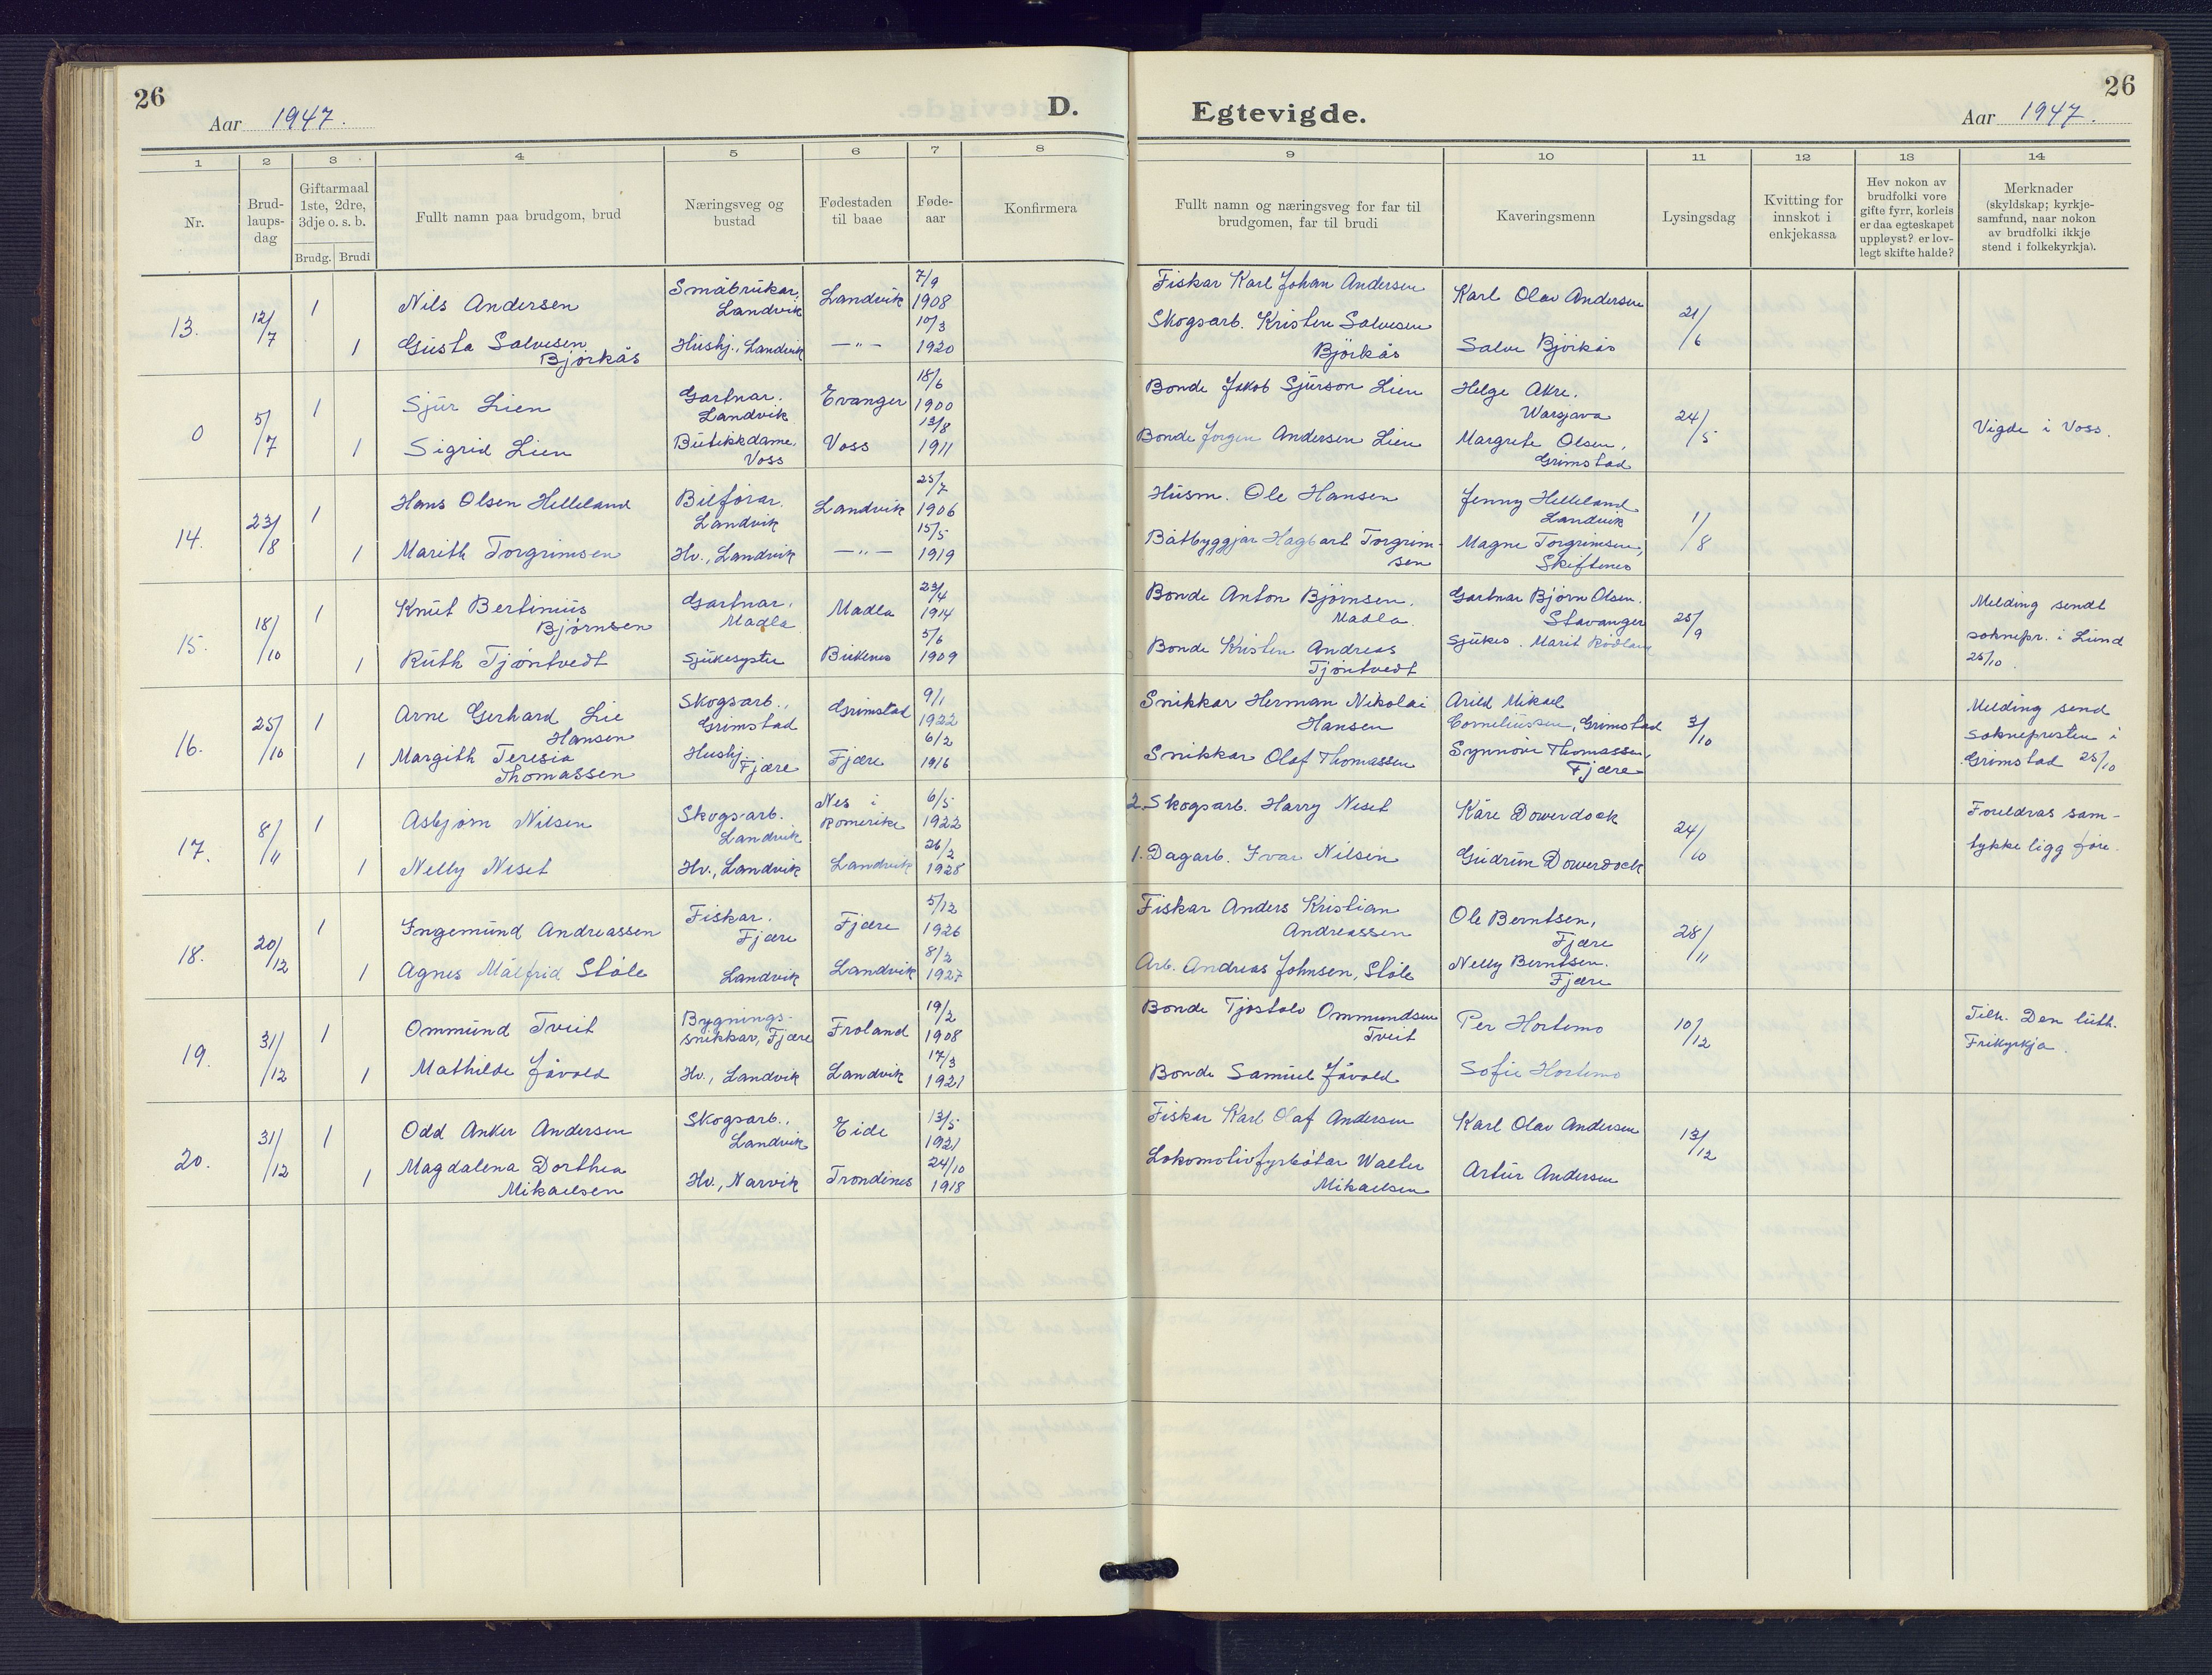 26
Aar 1947.
D.
Egtevigde.
Aar 1947.
26
1 2 3 4 5 6 7 8 9 10 11 12 13 14
Nr.
Brud-
laups-
dag
Giftarmaal
1ste, 2dre,
3dje o. s. b.
Brudg. Brudi
Fullt namn paa brudgom, brud
Næringsveg og
bustad
Fødestaden
til baae
Føde-
aar
Konfirmera
Fullt namn og næringsveg for far til
brudgomen, far til brudi
Kaveringsmenn
Lysingsdag
Kvitting for
innskot i
enkjekassa
Hev nokon av
brudfolki vore
gifte fyrr, korleis
er daa egteskapet
uppløyst? er lov-
legt skifte halde?
Merknader
(skyldskap; kyrkje-
samfund, naar nokon
av brudfolki ikkje
stend i folkekyrkja).
13.
12/7
1
Nils Andersen
Småbrukar,
Landvik
Landvik
7/9
1908
Fiskar Karl Johan Andersen
Karl Olav Andersen
21/6
1
Gusta Salvesen
Bjørkås
Hushj., Landvik
—"—
10/3
1920
Skogsarb. Kristen Salvesen
Bjørkås
Salve Bjørkås
0
5/7
1
Sjur Lien
Gartnar.
Landvik
Evanger
18/6
1900
Bonde Jakob Sjurson Lien
Helge Akre.
Warsjava
24/5
Vigde i Voss.
1
Sigrid Lien
Butikkdame,
Voss
Voss
13/8
1911
Bonde Jorgen Andersen Lien
Margrete Olsen,
Grimstad
14.
23/8
1
Hans Olsen Helleland
Bilførar.
Landvik
Landvik
25/7
1906
Husm. Ole Hansen
Jenny Helleland
Landvik
1/8
1
Marith Torgrimsen
Hv., Landvik
—"—
15/5
1919
Båtbyggjar Hagbart Torgrim-
sen
Magne Torgrimsen,
Skiftenes
15.
18/10
1
Knut Bertinius
Bjørnsen
Gartnar.
Madla
Madla
23/4
1914
Bonde Anton Bjørnsen.
Madla.
Gartnar Bjørn Olsen.
Stavanger
25/9
Melding sendt
soknepr. i Lund
25/10.
1
Ruth Tjøntvedt
Sjukesyster
Birkenes
5/6
1909
Bonde Kristen Andreas
Tjøntvedt
Sjukes. Marit Rødland
16.
25/10
1
Arne Gerhard Lie
Hansen
Skogsarb.,
Grimstad
Grimstad
9/1
1922
Snikkar Herman Nikolai
Hansen
Arild Mikael
Corneliussen, Grimstad
3/10
Melding send
soknepresten i
Grimstad 25/10
1
Margith Teresia
Thomassen
Hushj.
Fjære
Fjære
6/2
1916
Snikkar Olaf Thomassen
Synnøve Thomassen,
Fjære
17.
8/11
1
Asbjørn Nilsen
Skogsarb.
Landvik
Nes i
Romerike
6/5
1922
2. Skogsarb. Harry Neset
Kåre Dowerdock
24/10
Foreldras sam-
tykke ligg føre.
1
Nelly Neset
Hv., Landvik
Landvik
26/2
1928
1. Dagarb. Ivar Nilsen
Gudrun Dowerdock
18.
20/12
1
Ingemund Andreassen
Fiskar.
Fjære
Fjære
5/12
1926
Fiskar Anders Kristian
Andreassen
Ole Berntsen,
Fjære
28/11
1
Agnes Målfrid Støle
Landvik
Landvik
8/2
1927
Arb. Andreas Johnsen, Støle
Nelly Berntsen.
Fjære
19.
31/12
1
Ommund Tveit
Bygnings-
snikkar, Fjære
Froland
19/2
1908
Bonde Tjøstolv Ommundsen
Tveit
Per Hortemo
10/12
Tilh. Den luth.
Frikyrkja.
1
Mathilde Jåvold
Hv., Landvik
Landvik
17/3
1921
Bonde Samuel Jåvold
Sofie Hortemo
20.
31/12
1
Odd Anker Andersen
Skogsarb.,
Landvik
Eide
13/5
1921
Fiskar Karl Olaf Andersen
Karl Olav Andersen
13/12
1
Magdalena Dorthea
Mikaelsen
Hv., Narvik
Trondenes
24/10
1918
Lokomotivfyrbøtar Walter
Mikaelsen
Artur Andersen